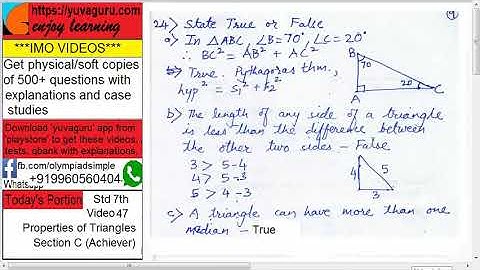 https://yuvaguru.com
enjoy learning
***IMO VIDEOS***
Get physical/soft copies
of 500+ questions with
explanations and case
studies
Download 'yuvaguru' app from
'playstore' to get these videos,
tests, qbank with explanations.
fb.com/olympiadsimple
Whatsapp
+919960560404
Today's Portion
Std 7th
Video 47
Properties of Triangles
Section C (Achiever)
24) State True or False
a) In △ABC, ∠B=70°, ∠C=20°
∴ BC² = AB² + AC²
True. Pythagoras thm.,
hyp² = s₁² + s₂²
B
70
20°
A
C
b) The length of any side of a triangle
is less than the difference between
the other two sides - False
3 > 5-4
4 > 5-3
5 > 4-3
4
5
3
c) A triangle can have more than one
median - True